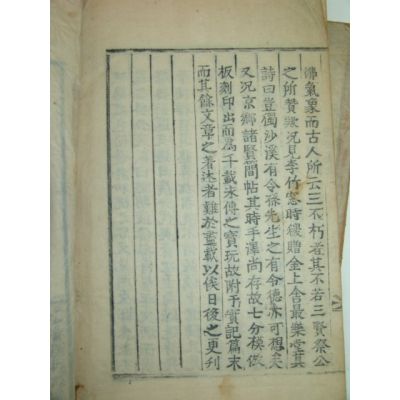 沸氣象而古人所云三不朽者其不若三賢祭公
之所贊歟況見李竹窓時稷贈金上舍最樂堂其
詩曰豈獨沙溪有令孫先生之有令德亦可想矣
又況京鄉諸賢簡帖其時手澤尚存故七分模倣
板刻印出而爲千載未傳之寶玩故附予實記篇末
而其餘文章之著述者難於盡載以俟日後之更刊